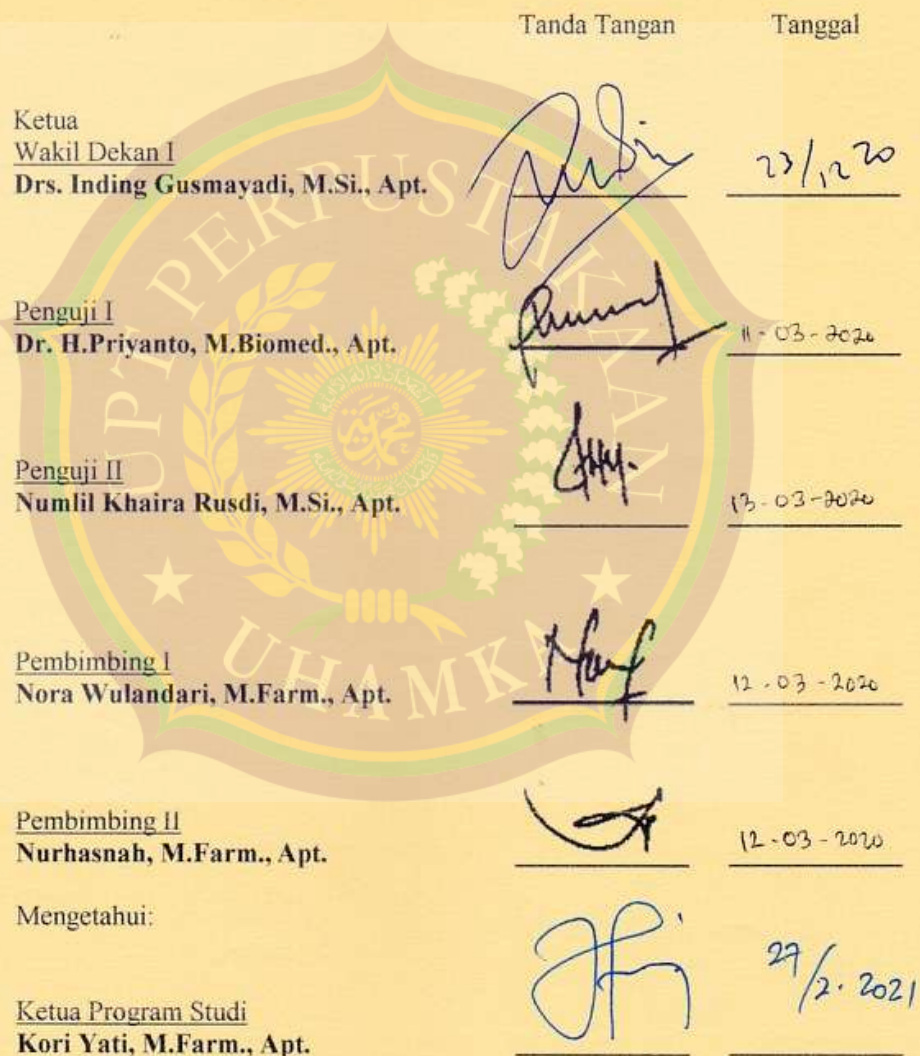 Tanda Tangan Tanggal
Ketua
Wakil Dekan I
Drs. Inding Gusmayadi, M.Si., Apt.
23/12 20
Penguji I
Dr. H.Priyanto, M.Biomed., Apt.
11-03-2020
Penguji II
Numlil Khaira Rusdi, M.Si., Apt.
13-03-2020
Pembimbing I
Nora Wulandari, M.Farm., Apt.
12-03-2020
Pembimbing II
Nurhasnah, M.Farm., Apt.
12-03-2020
Mengetahui:
Ketua Program Studi
Kori Yati, M.Farm., Apt.
27/2.2021
UPT PERPUSTAKAAN
UHAMKA